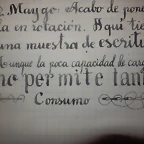 Muygo: Acabo de pone
la en rotación. Aquí tie
una muestra de escritu
Aunque la poca capacidad de carg
no permite tant
Consumo